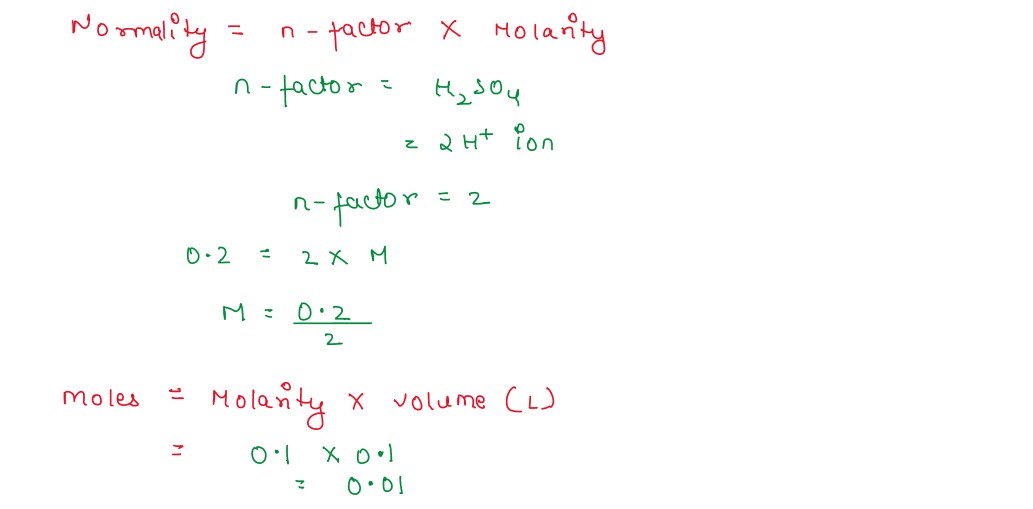 Normality = n-factor x Molarity
n-factor = H₂SO₄
= 2H⁺ ion
n-factor = 2
0.2 = 2 x M
M = 0.2
2
moles = Molarity x volume (L)
= 0.1 x 0.1
= 0.01